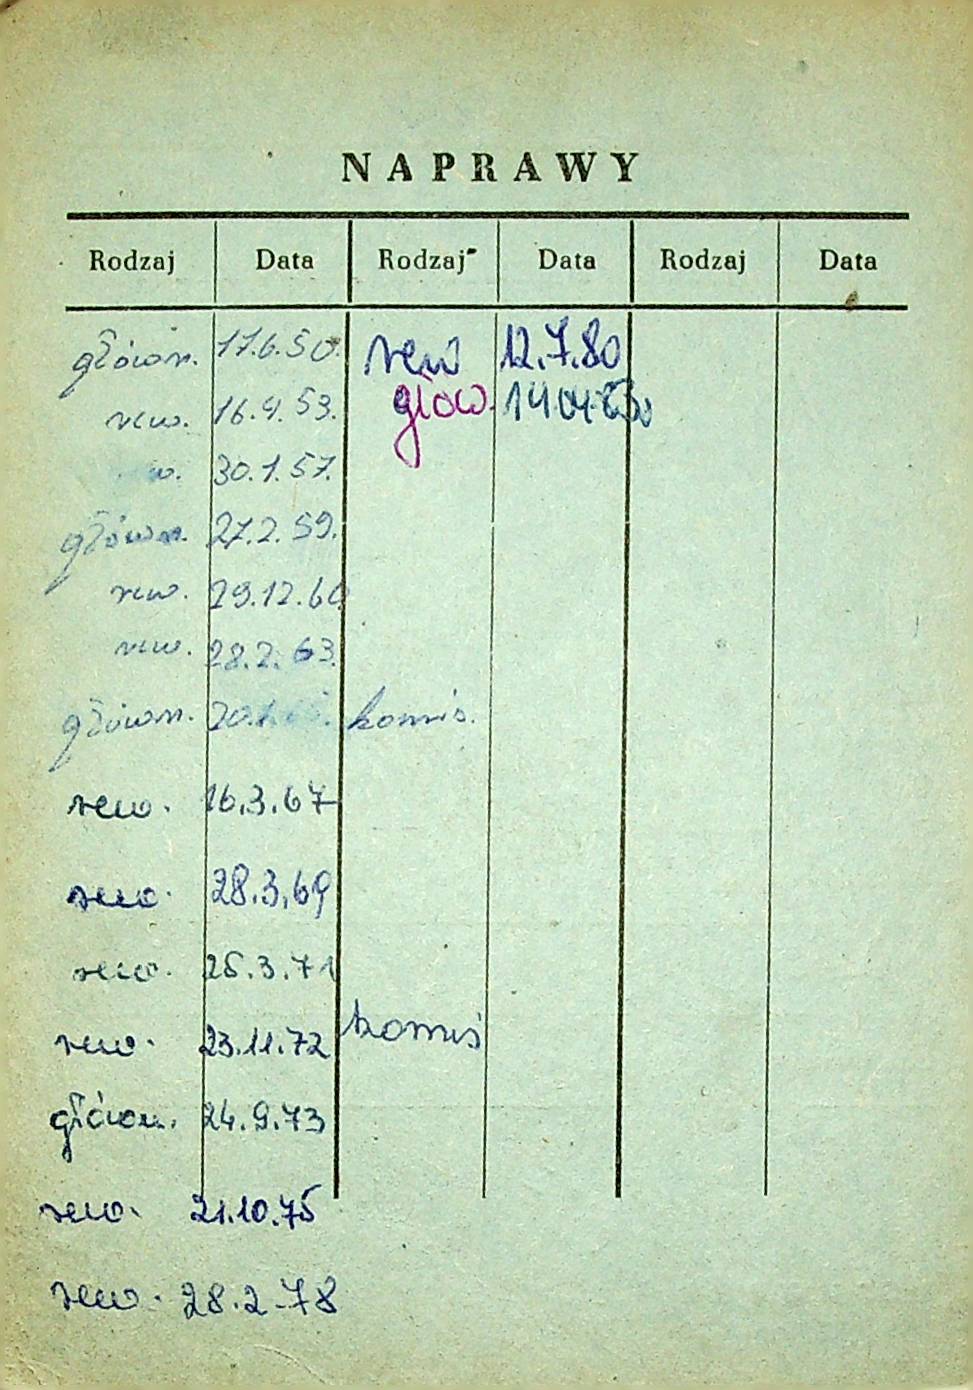 NAPRAWY
Rodzaj Data Rodzaj Data Rodzaj Data
główn. 17.6.50. rew 12.7.80
rew. 16.4.53. głow.
w. 30.1.57.
główn. 27.2.59.
rew. 29.12.60
rew. 28.2.63.
główn. 20.1. komis.
rew. 16.3.67
rew. 28.3.69
rew. 25.3.71
rew. 23.11.72 komis
główn. 24.9.73
rew. 21.10.75
rew. 28.2.78